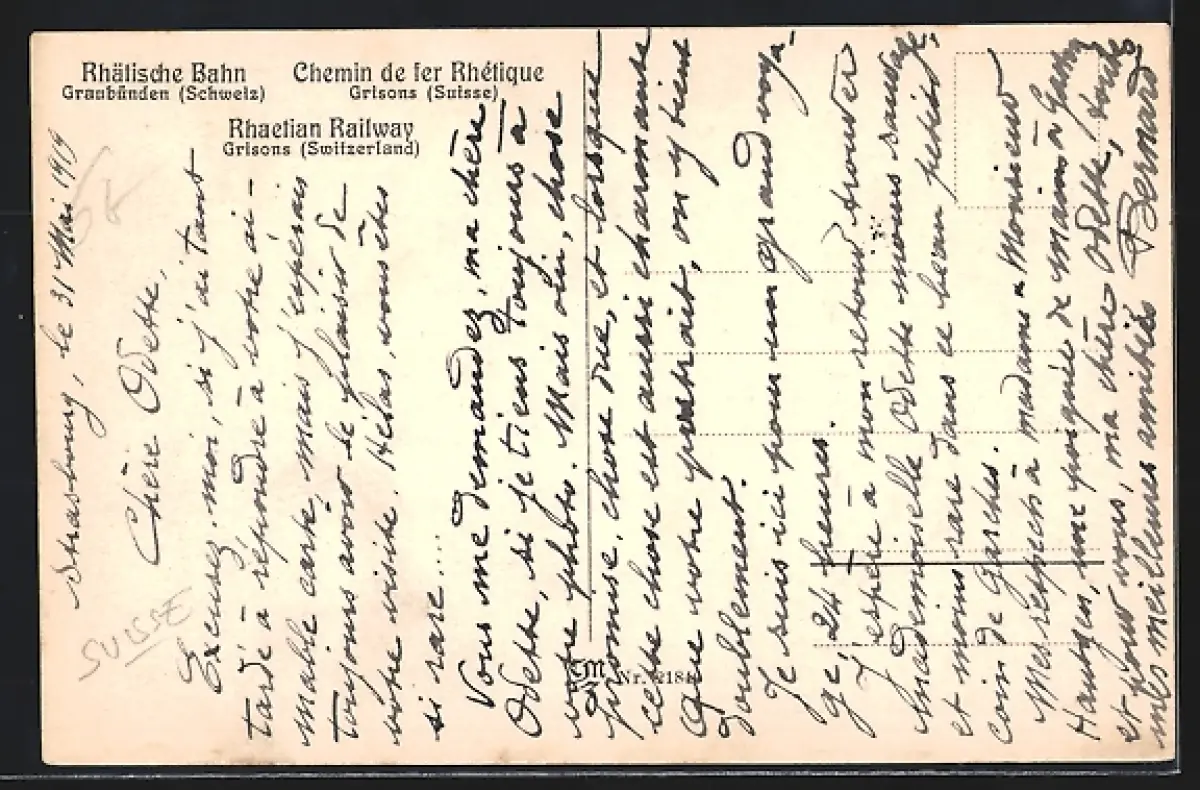 Rhätische Bahn
Graubünden (Schweiz)
Chemin de fer Rhétique
Grisons (Suisse)
Rhaetian Railway
Grisons (Switzerland)
SUISSE
Strasbourg, le 31 Mai 1919
Chère Odette,
Excusez-moi, si j'ai tant
tardé à répondre à votre ai-
mable carte, mais j'espérais
toujours avoir le plaisir de
votre visite. Hélas, vous êtes
si rare....
Vous me demandez, ma chère
Odette, si je tiens toujours à
votre photo. Mais oui, chose
promise, chose due, et lorsque
cette chose est aussi charmante
que votre portrait, on y tient
doublement.
Je suis ici pour un grand voya-
ge, 24 heures.
J'espère à mon retour trouver
Mademoiselle Odette moins sauvage,
et moins rare dans ce beau petit
coin de Garches.
Mes respects à madame & Monsieur
une poignée de main à
et pour vous, ma chère Odette, toutes
mes meilleures amitiés Bernard
Nr.